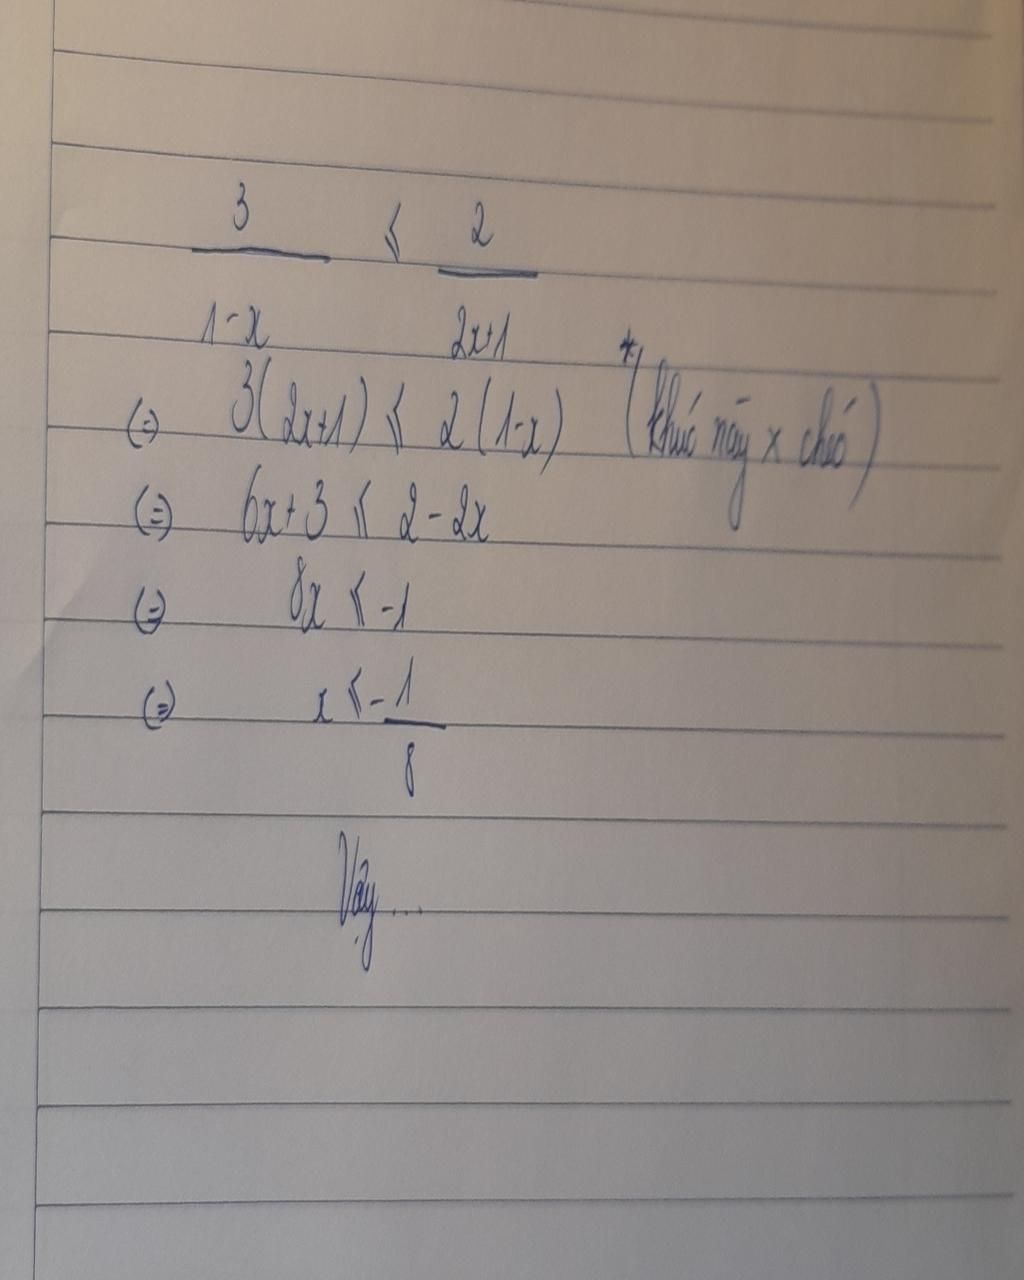 3 ⩽ 2
1-x 2x+1
(=) 3(2x+1) ⩽ 2(1-x) *(khúc này x chéo)
(=) 6x+3 ⩽ 2-2x
(=) 8x ⩽ -1
(=) x ⩽ -1
8
Vậy ...